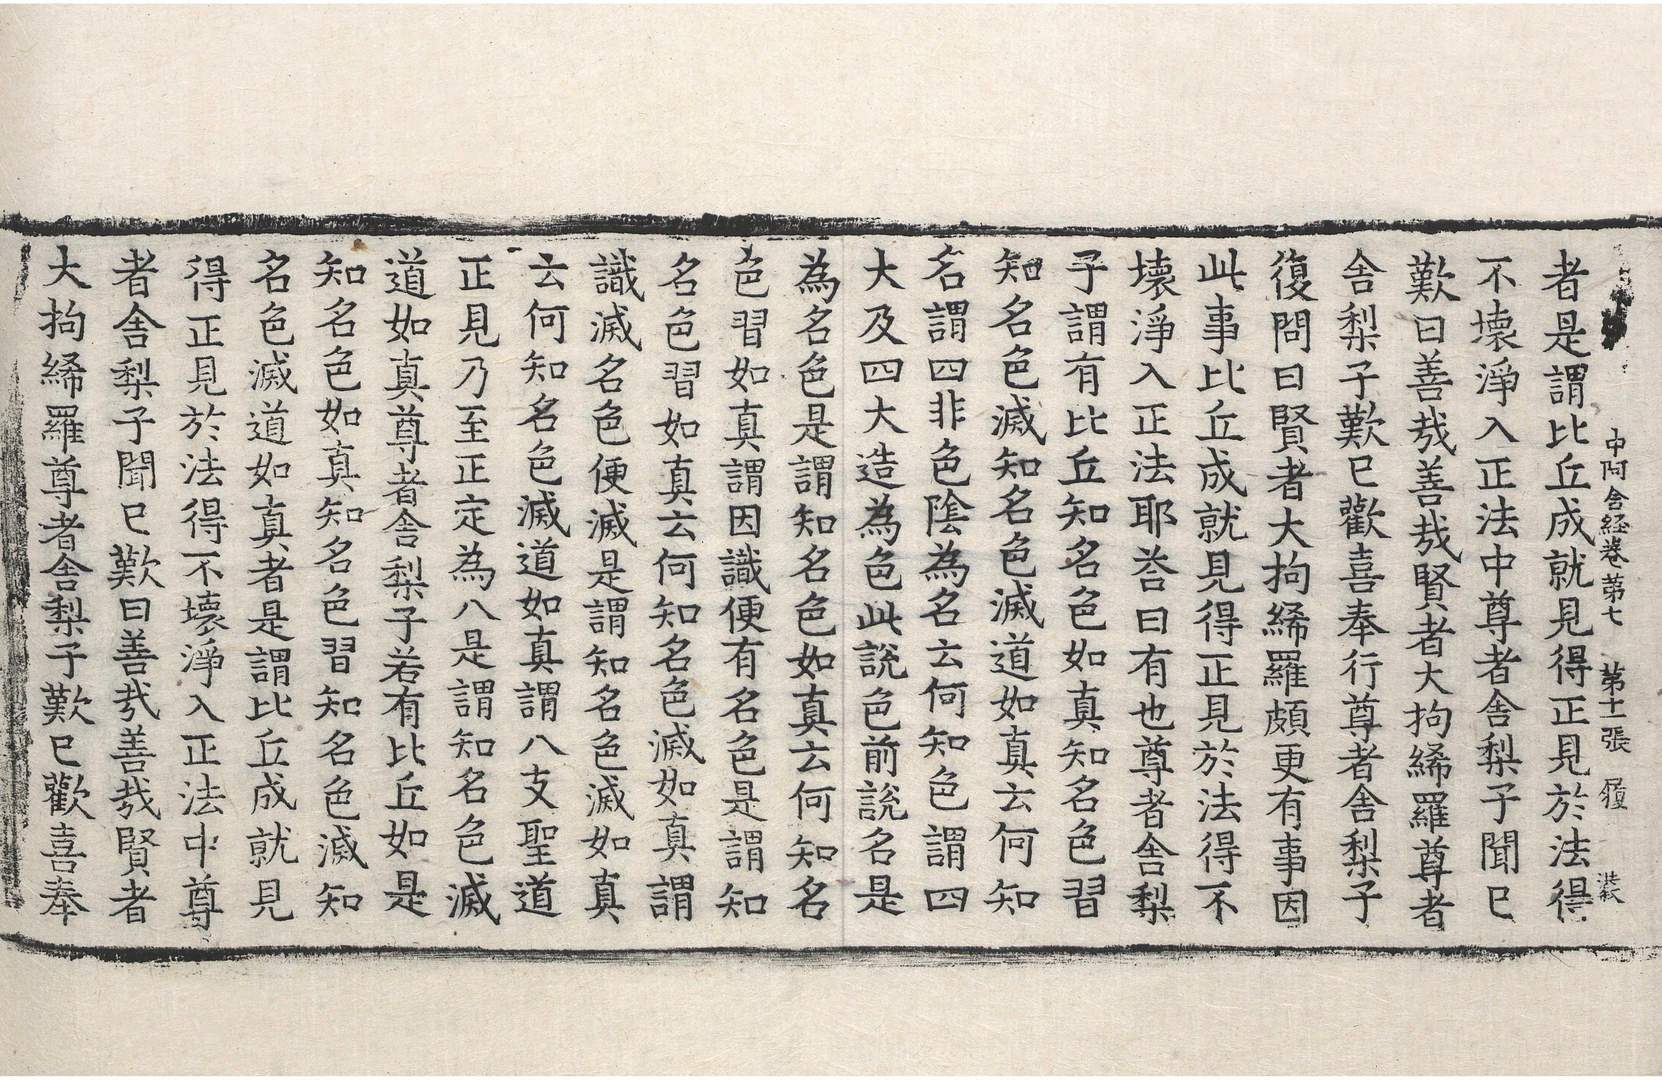 中阿含経卷第七 第十一張 履
者是謂比丘成就見得正見於法得
不壞淨入正法中尊者舍梨子聞已
歎曰善㢤善㢤賢者大拘絺羅尊者
舍梨子歎已歡喜奉行尊者舍梨子
復問曰賢者大拘絺羅頗更有事因
此事比丘成就見得正見於法得不
壞淨入正法耶荅曰有也尊者舍梨
子謂有比丘知名色如真知名色習
知名色滅知名色滅道如真云何知
名謂四非色陰為名云何知色謂四
大及四大造為色此說色前說名是
為名色是謂知名色如真云何知名
色習如真謂因識便有名色是謂知
名色習如真云何知名色滅如真謂
識滅名色便滅是謂知名色滅如真
云何知名色滅道如真謂八支聖道
正見乃至正定為八是謂知名色滅
道如真尊者舍梨子若有比丘如是
知名色如真知名色習知名色滅知
名色滅道如真者是謂比丘成就見
得正見於法得不壞淨入正法中尊
者舍梨子聞已歎曰善㢤善㢤賢者
大拘絺羅尊者舍梨子歎已歡喜奉